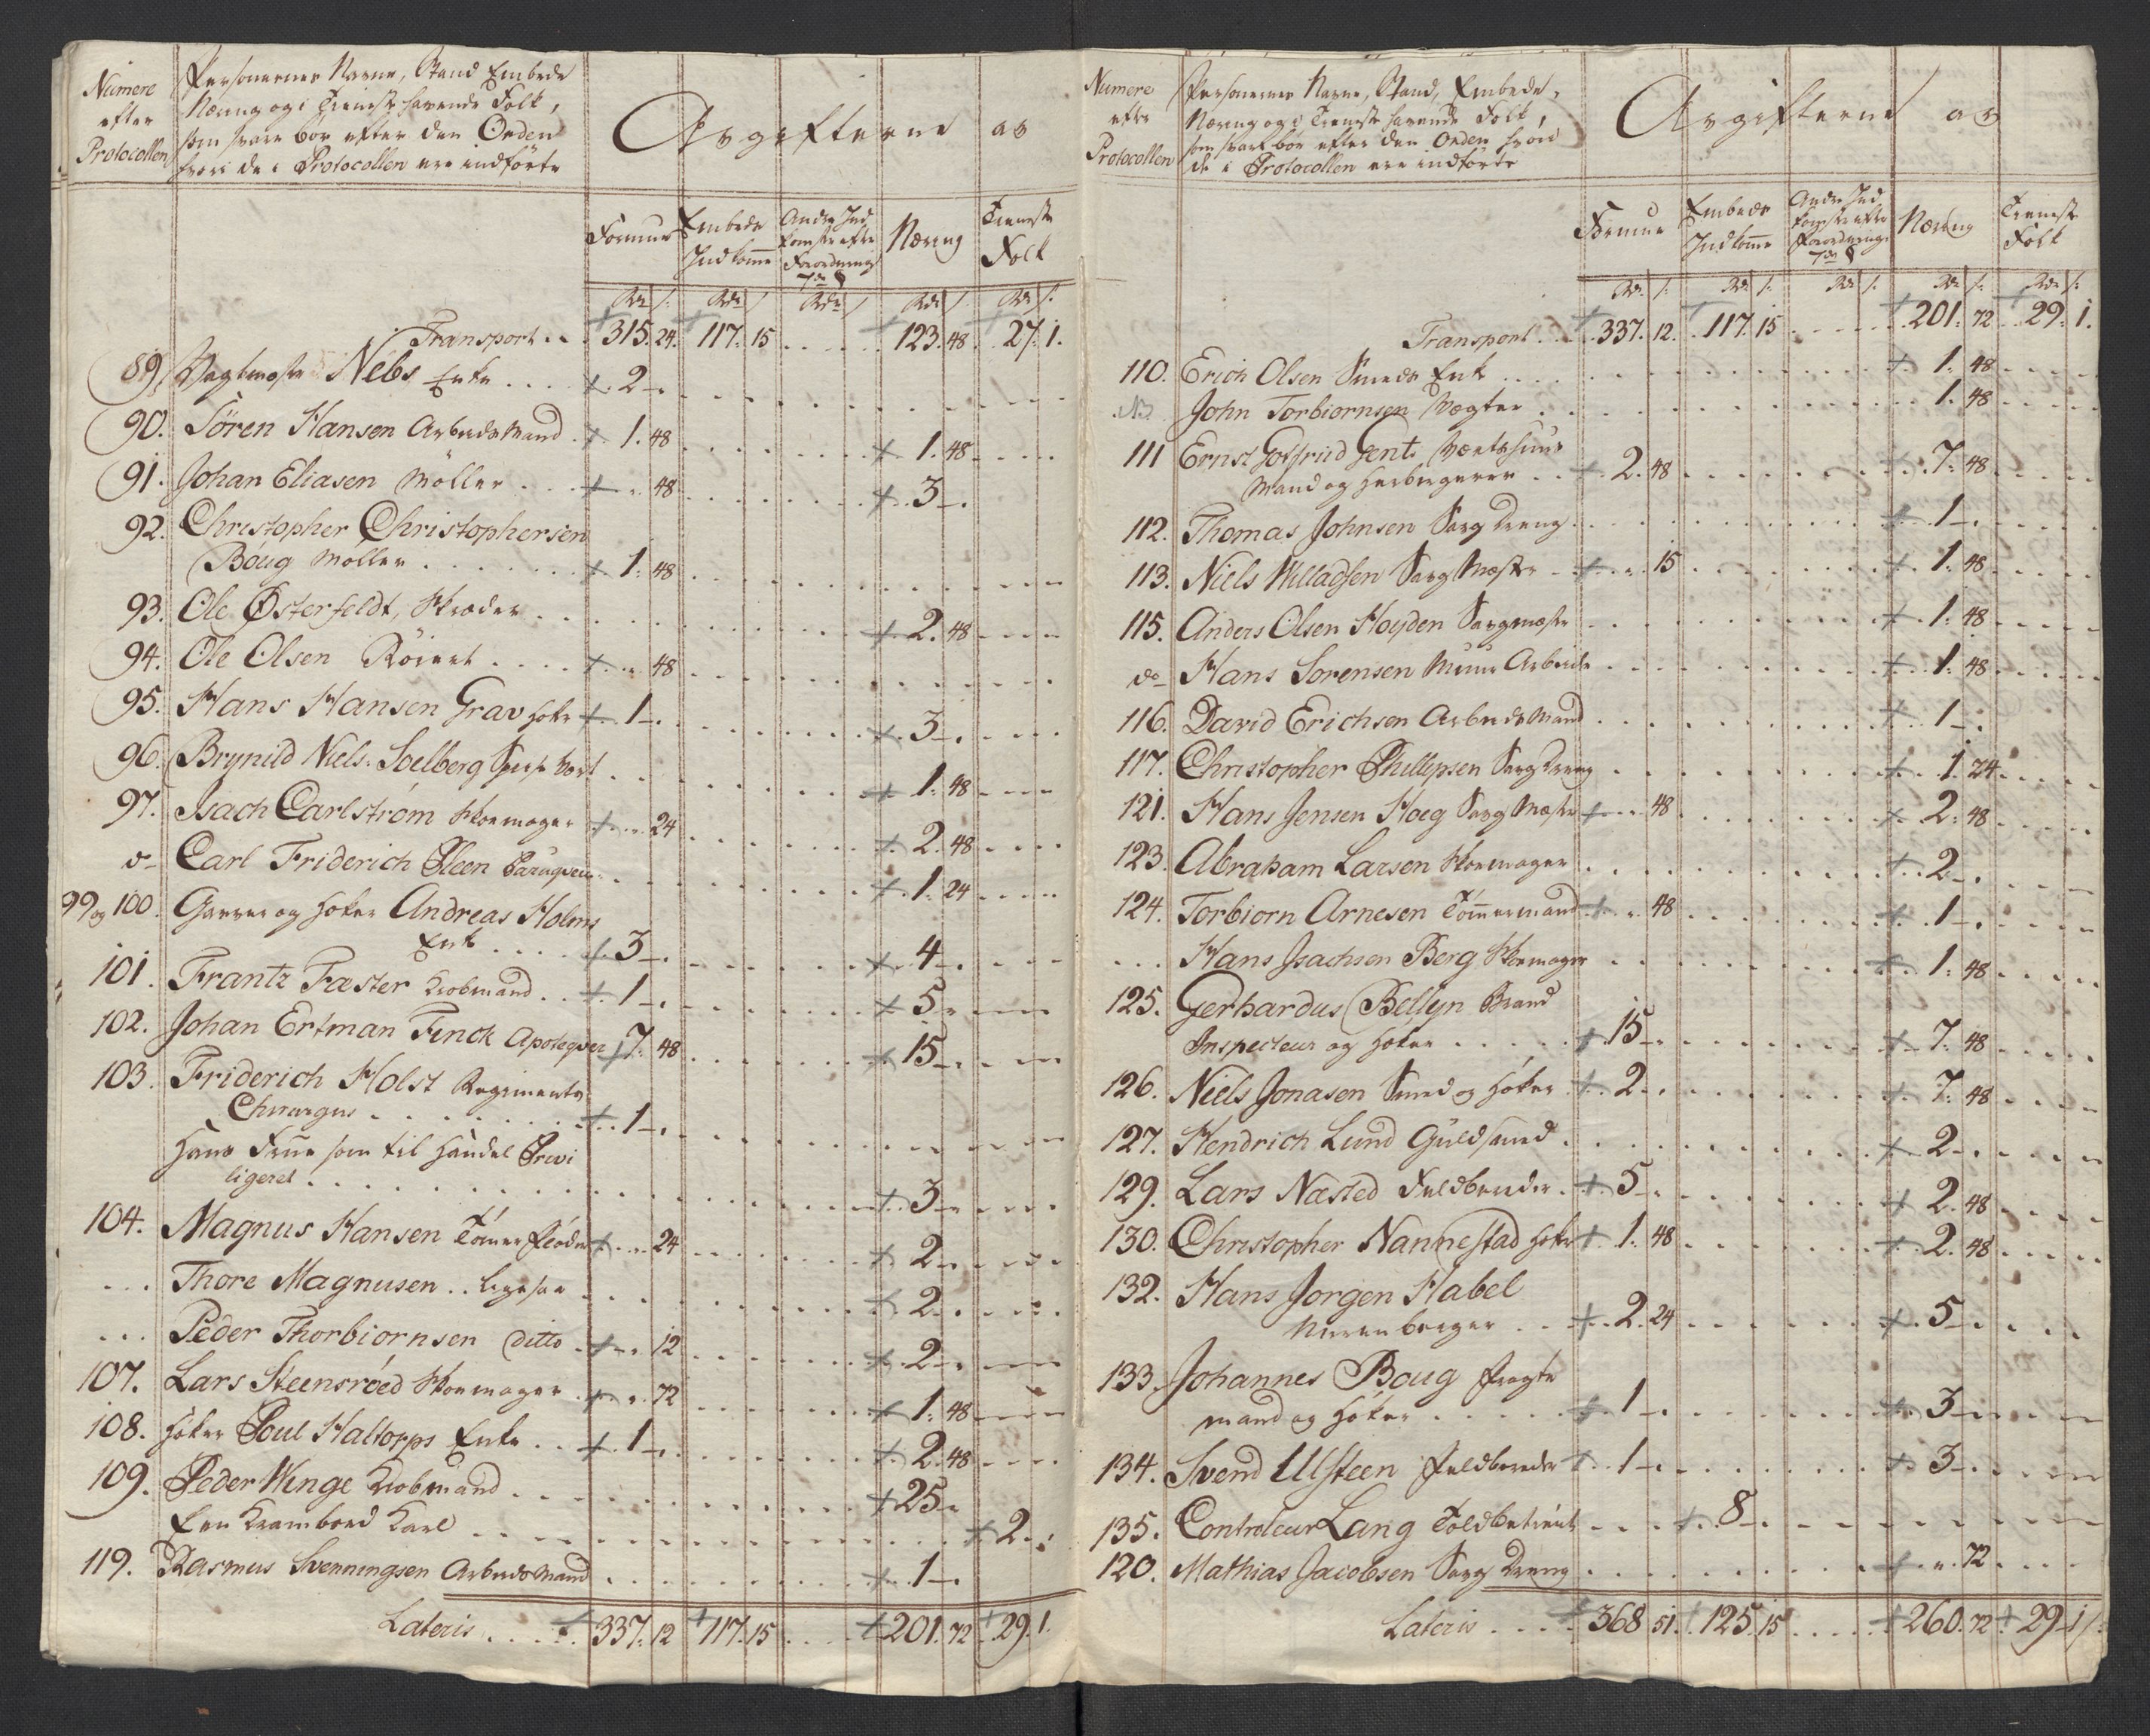 Numere efter Protocollen
Personernes Navne, Stand Embede
Næring og i Tieneste havende Folk,
som svare bør efter den Orden
hvori de i Protocollen ere indförte
Avgifterne av
Formue
Embeds Indkomme
Andre Ind komster efter Forordnings 7de §
Næring
Tieneste Folk
Rdr ß Rdr ß Rdr ß Rdr ß Rdr ß
Transport .. 315. 24. 117. 15 ..... 123. 48. 27. 1.
89. Vagtmester Nebs Enke .... 2 -.
90. Sören Hansen Arbeids Mand 1. 48 ..... 1. 48
91. Johan Eliasen Möller ... - 48 ..... 3 -.
92. Christopher Christophersen
Boug Möller ....... 1. 48
93. Ole Østerfeldt, Skræder ..... 2. 48
94. Ole Olsen Röiert .... - 48
95. Hans Hansen Grav Höker 1 -. ..... 3 -.
96. Brynild Niels. Soelberg Spise Vært ..... 1. 48
97. Isach Carlström Skoemager - 24 ..... 2. 48
do Carl Friderich Kleen Paruqvem. ..... 1. 24
99 og 100. Garver og Höker Andreas Holms
Enke .... 3 -. ..... 4 -.
101. Frantz Faster Kiöbmand .. 1 -. ..... 5 -
102. Johan Ertman Finck Apoteqver 7. 48 ..... 15 -.
103. Friderich Holst Regiments
Chirurgus ....... 1 -.
Hans Frue som til Handel Previ
ligeret ....... 3 -
104. Magnus Hansen Tömmer fløder - 24 ..... 2 -
... Thore Magnusen .. ligesaa ..... 2 -.
... Peder Thorbiornsen ditto - 12 ..... 2 -.
107. Lars Steensröed Skoemager - 72 ..... 1. 48
108. Höker Poul Haltorps Enke .. 1 -. ..... 2. 48
109. Peder Winge Kiobmand ..... 25 -
Een Kramboed Karl ..... 2 -.
119. Rasmus Svenningsen Arbeids Mand ..... 1 -.
Lateris ..... 337. 12 117. 15 ..... 201. 72 29. 1.
Numere efter Protocollen
Personernes Navne, Stand, Embede,
Næring og i Tieneste havende Folk,
som svare bör efter den Orden hvori
de i Protocollen ere indförte
Avgifterne av
Formue
Embeds Indkomme
Andre Ind komster efter Forordnings 7de §
Næring
Tieneste Folk
Rdr ß Rdr ß Rdr ß Rdr ß Rdr ß
Transport .. 337. 12. 117. 15 ..... 201. 72 29. 1.
110. Erich Olsen Smeds Enke ..... 1. 48
No. John Torbiornsen Vægter ..... 1. 48
111 Ernst Gotfried Gent. Værtshuus
Mand og Herbergerer .. 2. 48 ..... 7. 48
112. Thomas Johnsen Savg Dreng ..... 1 -.
113. Niels Willadsen Savg Mester - 15 ..... 1. 48
115. Anders Olsen Hoyden Savgmester ..... 1. 48
do Hans Sorensen Muur Arbeider ..... 1. 48
116. David Erichsen Arbeids Mand ..... 1 -.
117. Christopher Phillipsen Savg Dreng ..... 1. 24
121. Hans Jensen Hoeg Savg Mester - 48 ..... 2. 48
123. Abraham Larsen Skoemager ..... 2 -.
124. Torbiorn Arnesen Tömmermand - 48 ..... 1 -.
... Hans Isachsen Berg Skoemager ..... 1. 48
125. Gerhardus Bellyn Brand
Inspecteur og Höker ..... 15 -. ..... 7. 48
126. Niels Jonasen Smed og Höker 2 -. ..... 7. 48
127. Hendrich Lund Guldsmed ..... 2 -.
129. Lars Næsted Feldbereder . 5 -. ..... 2. 48
130. Christopher Nannestad Höker 1. 48 ..... 2. 48
132. Hans Jorgen Habel
Nurenberger .. 2. 24 ..... 5 -.
133. Johannes Boug Fragte
mand og Höker ..... 1 -. ..... 3 -
134. Svend Ulsteen Feldbereder 1 -. ..... 3 -.
135. Controleur Lang Toldbetient ... 8 -.
120. Mathias Jacobsen Savg Dreng ..... - 72
Lateris .... 368 51. 125. 15 ..... 260. 72 29 - 1